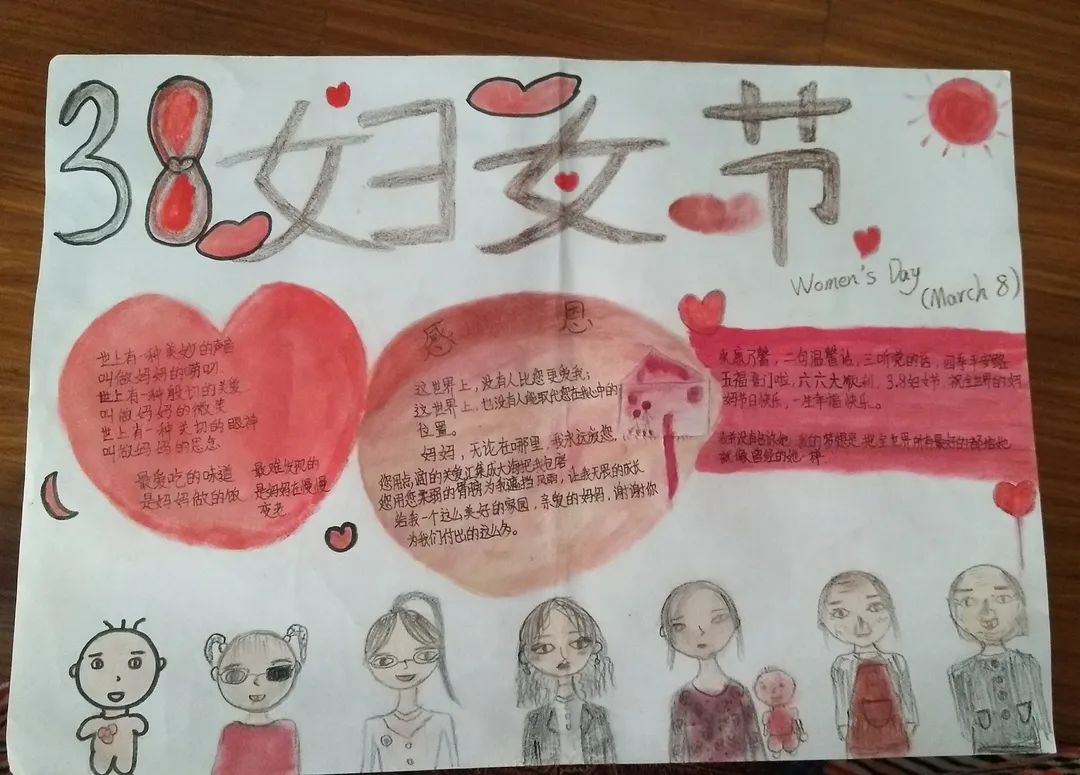 38妇女节
Women's Day
(March 8)
世上有一种美妙的声音
叫做妈妈的唠叨
世上有一种殷切的关爱
叫做妈妈的微笑
世上有一种关切的眼神
叫做妈妈的思念
最爱吃的味道
是妈妈做的饭
最难发现的
是妈妈在慢慢
变老
感恩
这世界上,没有人比您更爱我;
这世界上,也没有人能取代您在我心中的
位置。
妈妈,无论在哪里,我永远爱您,
您用点滴的关爱汇集成大海把我包容
您用您柔弱的臂膀为我遮挡风雨,让我无忧的成长
给我一个这么美好的家园,亲爱的妈妈,谢谢你
为我们付出的这么多。
二句温馨话,三听党的话,四季平安踏
五福进门啦,六六大顺到,3.8妇女节,祝全世界的妈
妈节日快乐,一生幸福快乐。
我的梦想是把全世界所有最好的都给她
就像曾经的她一样